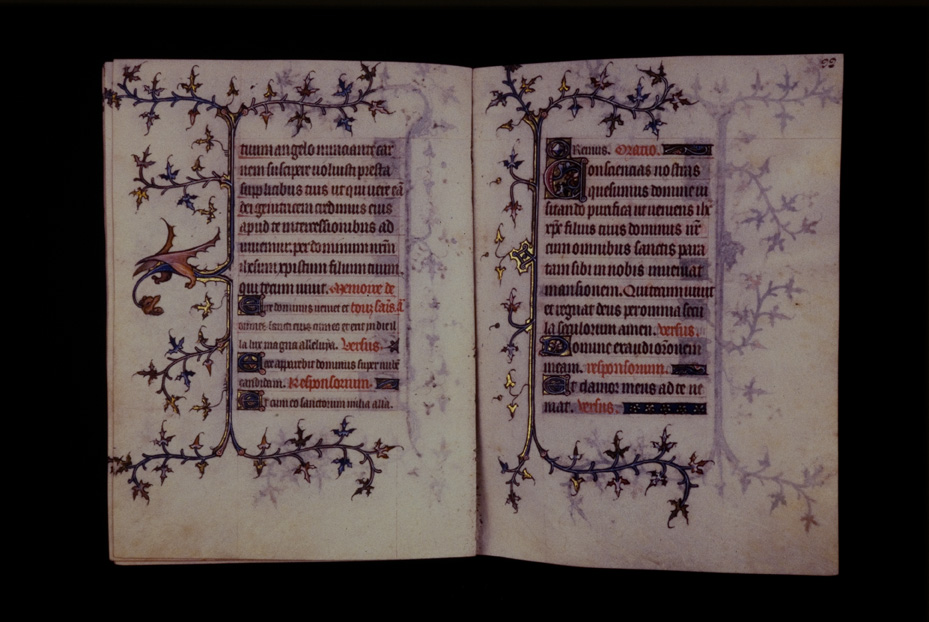 tuum angelo nunciante car
nem suscipere voluisti presta
supplicibus tuis ut qui vere eā
dei genitricem credimus eius
apud te intercessionibus ad
iuvemur. per dominum nrm̄
ihesum xpistum filium tuum.
qui tecum vivit. Memoire de
Ecce dominus veniet et touz sais. ā
omnes sancti eius cum eo et erit in die il
la lux magna alleluya. Versus.
Ecce apparebit dominus super nube
candidam. Responsorium.
Et cum eo sanctorum milia alla.
Oremus. Oratio.
Consciencias nostras
quesumus domine vi
sitando purifica ut veniens ihc̄
xp̄c filius tuus dominus nr̄
cum omnibus sanctis para
tam sibi in nobis inveniat
mansionem. Qui tecum vivit
et regnat deus per omnia secu
la seculorum amen. Versus.
Domine exaudi orōnem
meam. responsorium.
Et clamor meus ad te ve
niat. Versus.